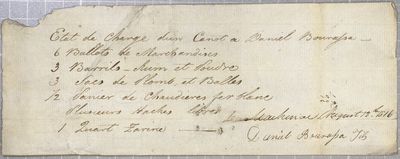 Etat de Charge d'un Canot a Daniel Bourassa —
6 Ballots de Marchandises
3 Barrils - Rum et Poudre
3 Sacs de Plomb et Balles
1/2 Panier de Chaudieres fer blanc
Plusieurs Haches
1 Quart Farine Mackinac August 12th 1816
Daniel Bourapa